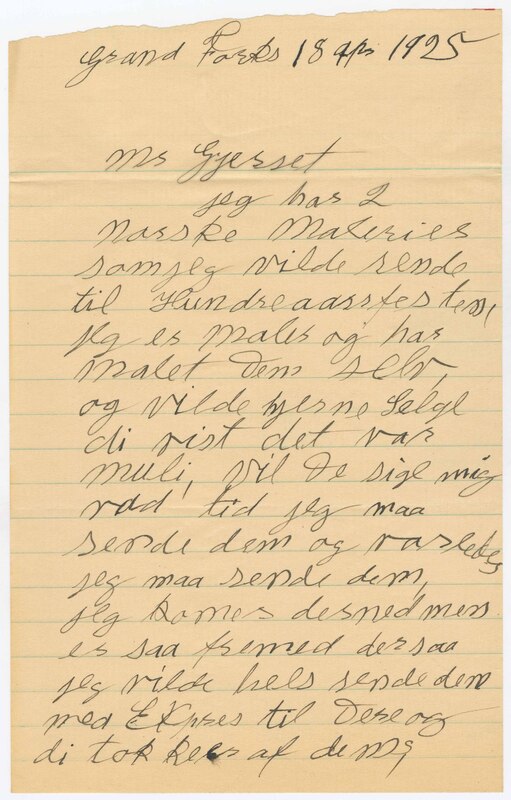 Grand Forks 18 Apr 1925
Mr Gjerset
jeg har 2
norske Malerier
som jeg vilde sende
til Hundreaarsfesten,
jeg er Maler og har
Malet dem selv,
og vilde hjerne selge
di vist det var
muli, vil De sige mig
vad tid jeg maa
sende dem og vorledes
jeg maa sende dem,
jeg komer dernedmen
er saa fremed dersaa
jeg vilde hels sende dem
med EXpres til Dere og
di tok keer af dem,